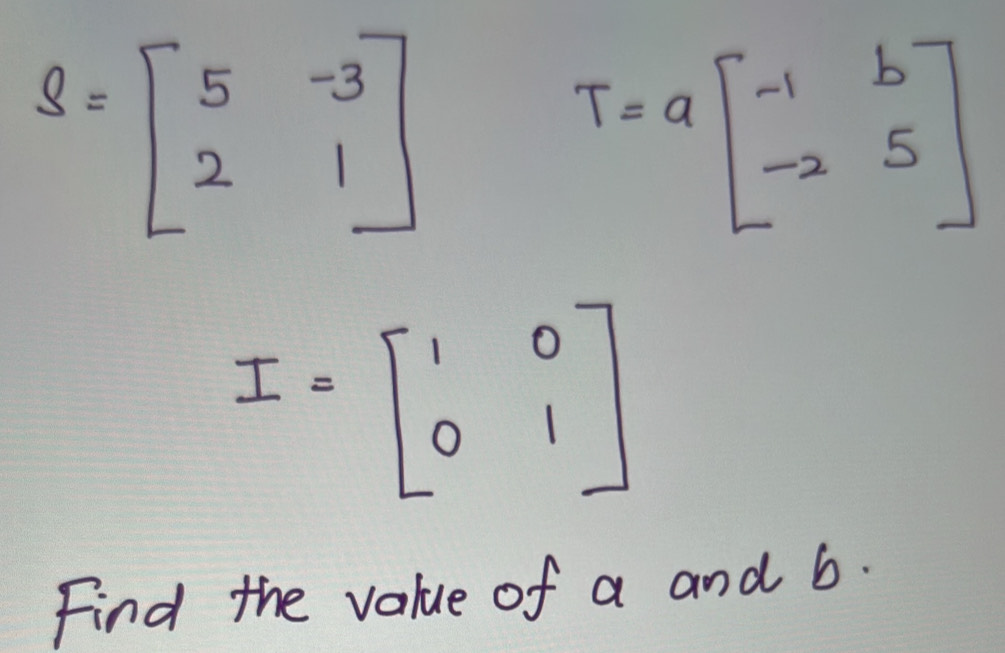 S = [ 5 -3 ] T = a [ -1 b ]
[ 2 1 ] [ -2 5 ]
I = [ 1 0 ]
[ 0 1 ]
Find the value of a and b.